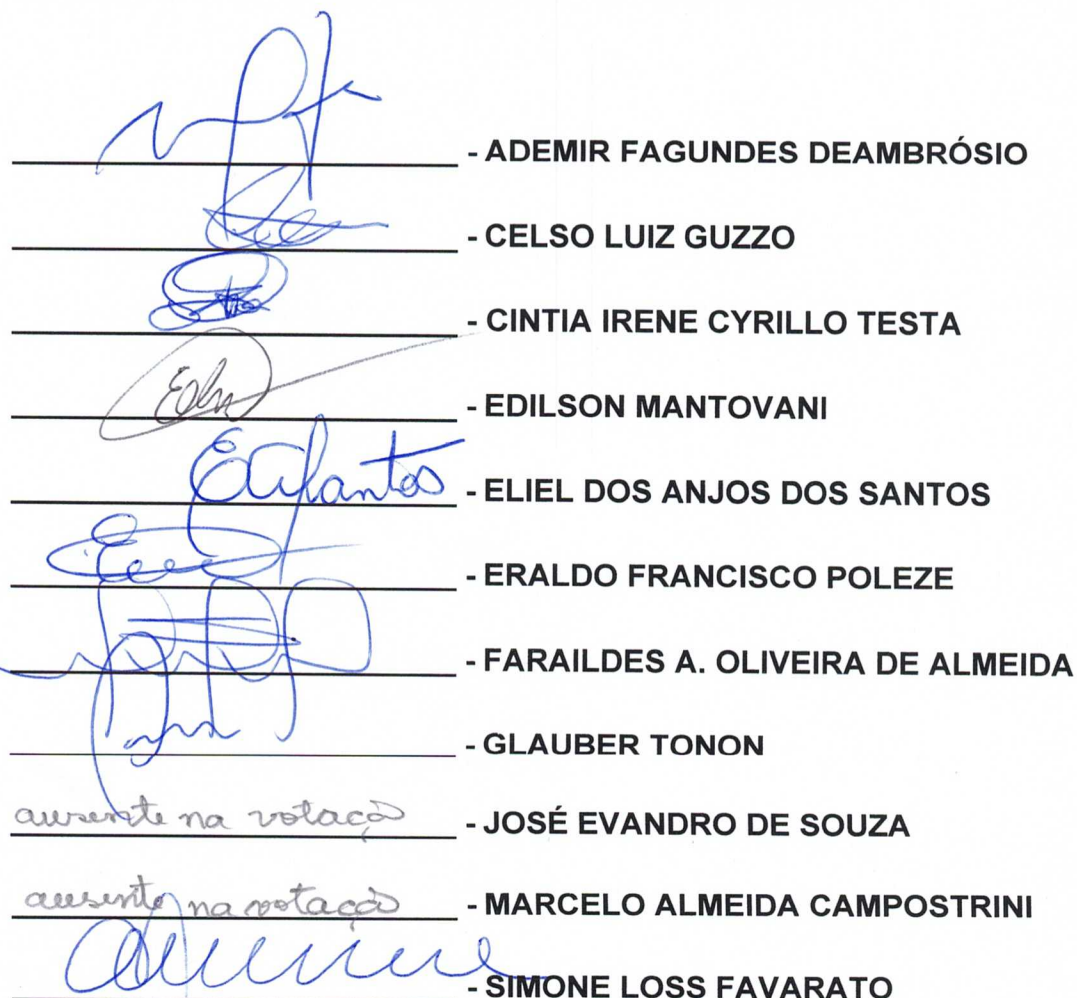 - ADEMIR FAGUNDES DEAMBRÓSIO
- CELSO LUIZ GUZZO
- CINTIA IRENE CYRILLO TESTA
- EDILSON MANTOVANI
- ELIEL DOS ANJOS DOS SANTOS
- ERALDO FRANCISCO POLEZE
- FARAILDES A. OLIVEIRA DE ALMEIDA
- GLAUBER TONON
ausente na votação - JOSÉ EVANDRO DE SOUZA
ausente na votação - MARCELO ALMEIDA CAMPOSTRINI
- SIMONE LOSS FAVARATO